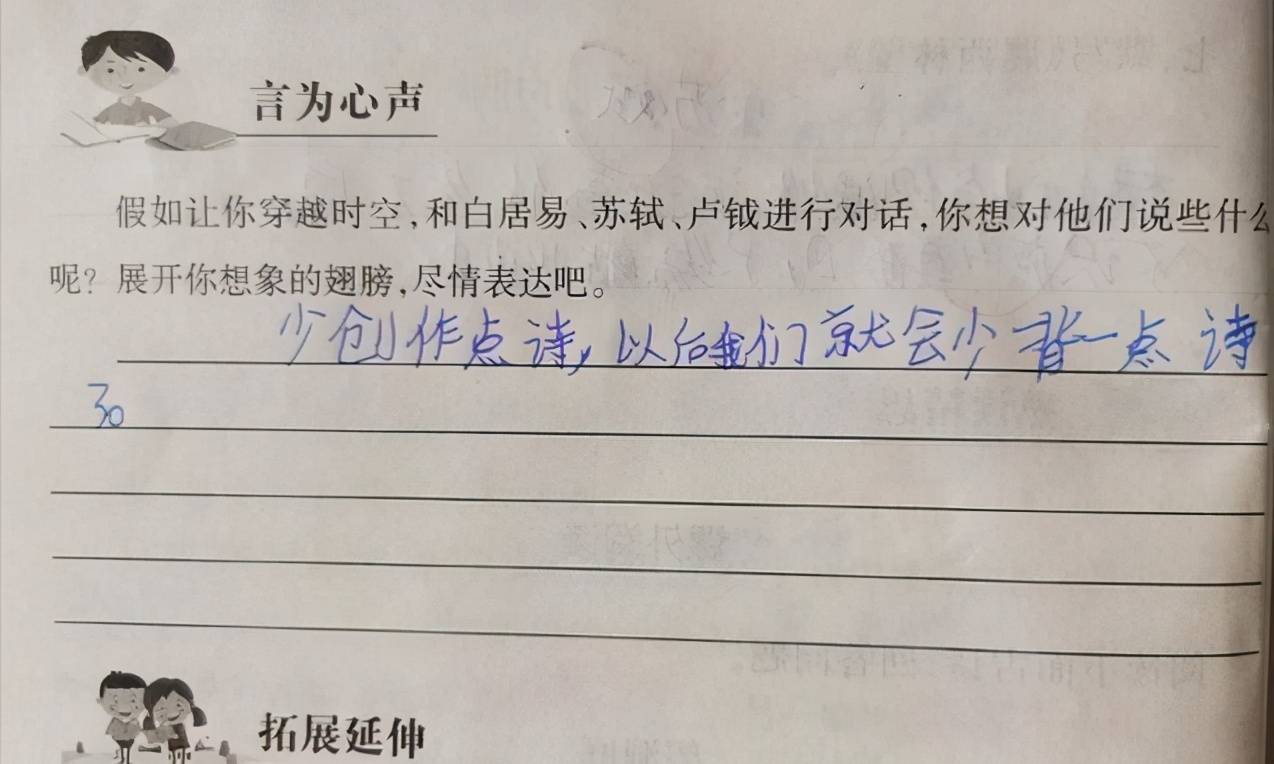 言为心声
假如让你穿越时空,和白居易、苏轼、卢钺进行对话,你想对他们说些什么
呢?展开你想象的翅膀,尽情表达吧。
少创作点诗,以后我们就会少背一点诗
了。
拓展延伸